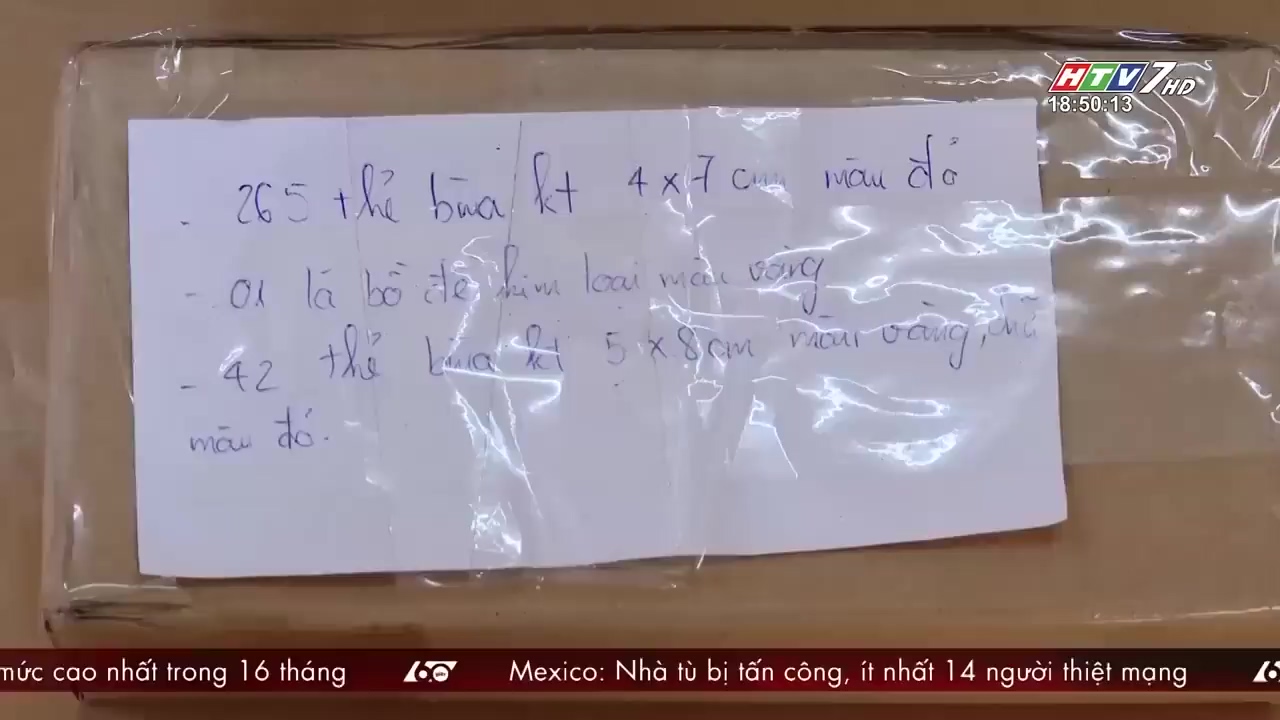 HTV7 HD
18:50:13
- 265 thẻ bùa kt 4x7 cm màu đỏ
- 01 lá bồ đề kim loại màu vàng
- 42 thẻ bùa kt 5x8cm màu vàng, chữ
màu đỏ.
mức cao nhất trong 16 tháng 60 giây Mexico: Nhà tù bị tấn công, ít nhất 14 người thiệt mạng